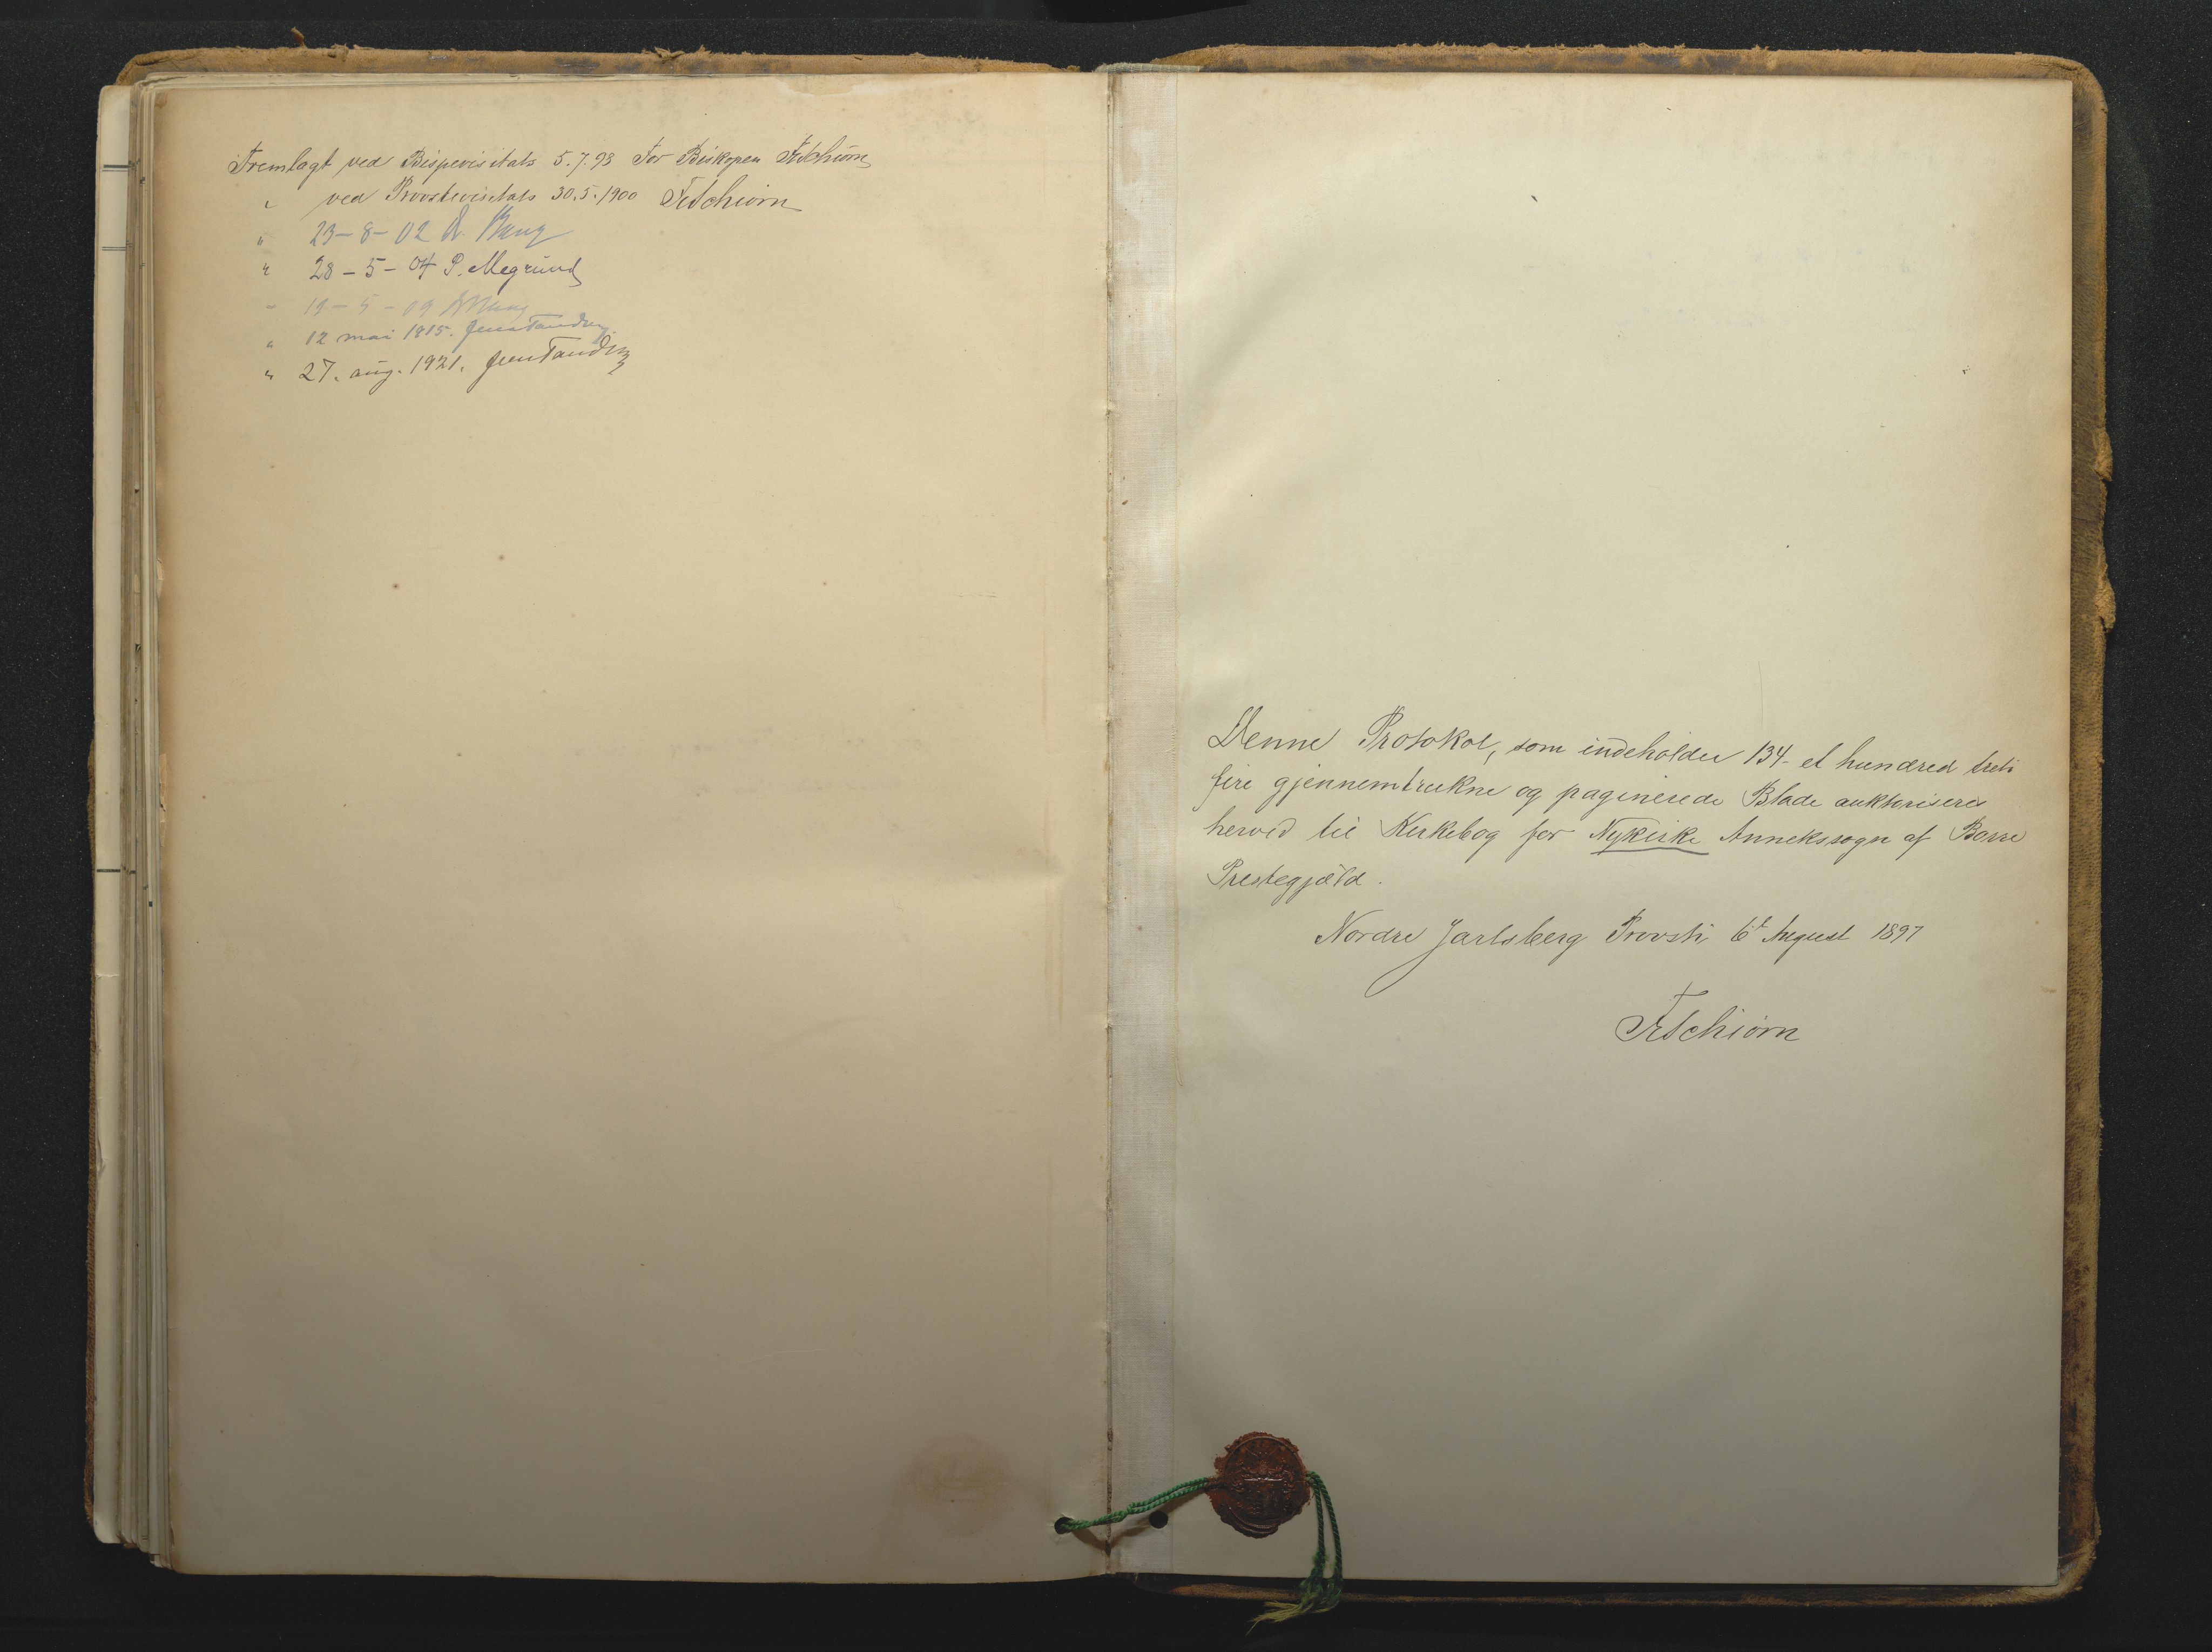 Fremlagt ved Bispevisitats 5.7.98 For Biskopen FrSchiørn
" ved Provstevisitats 30.5.1900 FrSchiørn
" 23-8-02 A. Bang
" 28-5-04 P. Megrund
" 19-5-09 A Bang
" 12 mai 1915. Jens Tandberg
" 27. aug. 1921. Jens Tandberg
Denne Protokol, som indeholder 134 - et hundred treti
fire gjennemtrukne og paginerede Blade aukthoriseres
herved til Kirkebog for Nykirke Annekssogn af Borre
Prestegjæld.
Nordre Jarlsberg Provsti 6t August 1897
FrSchiørn